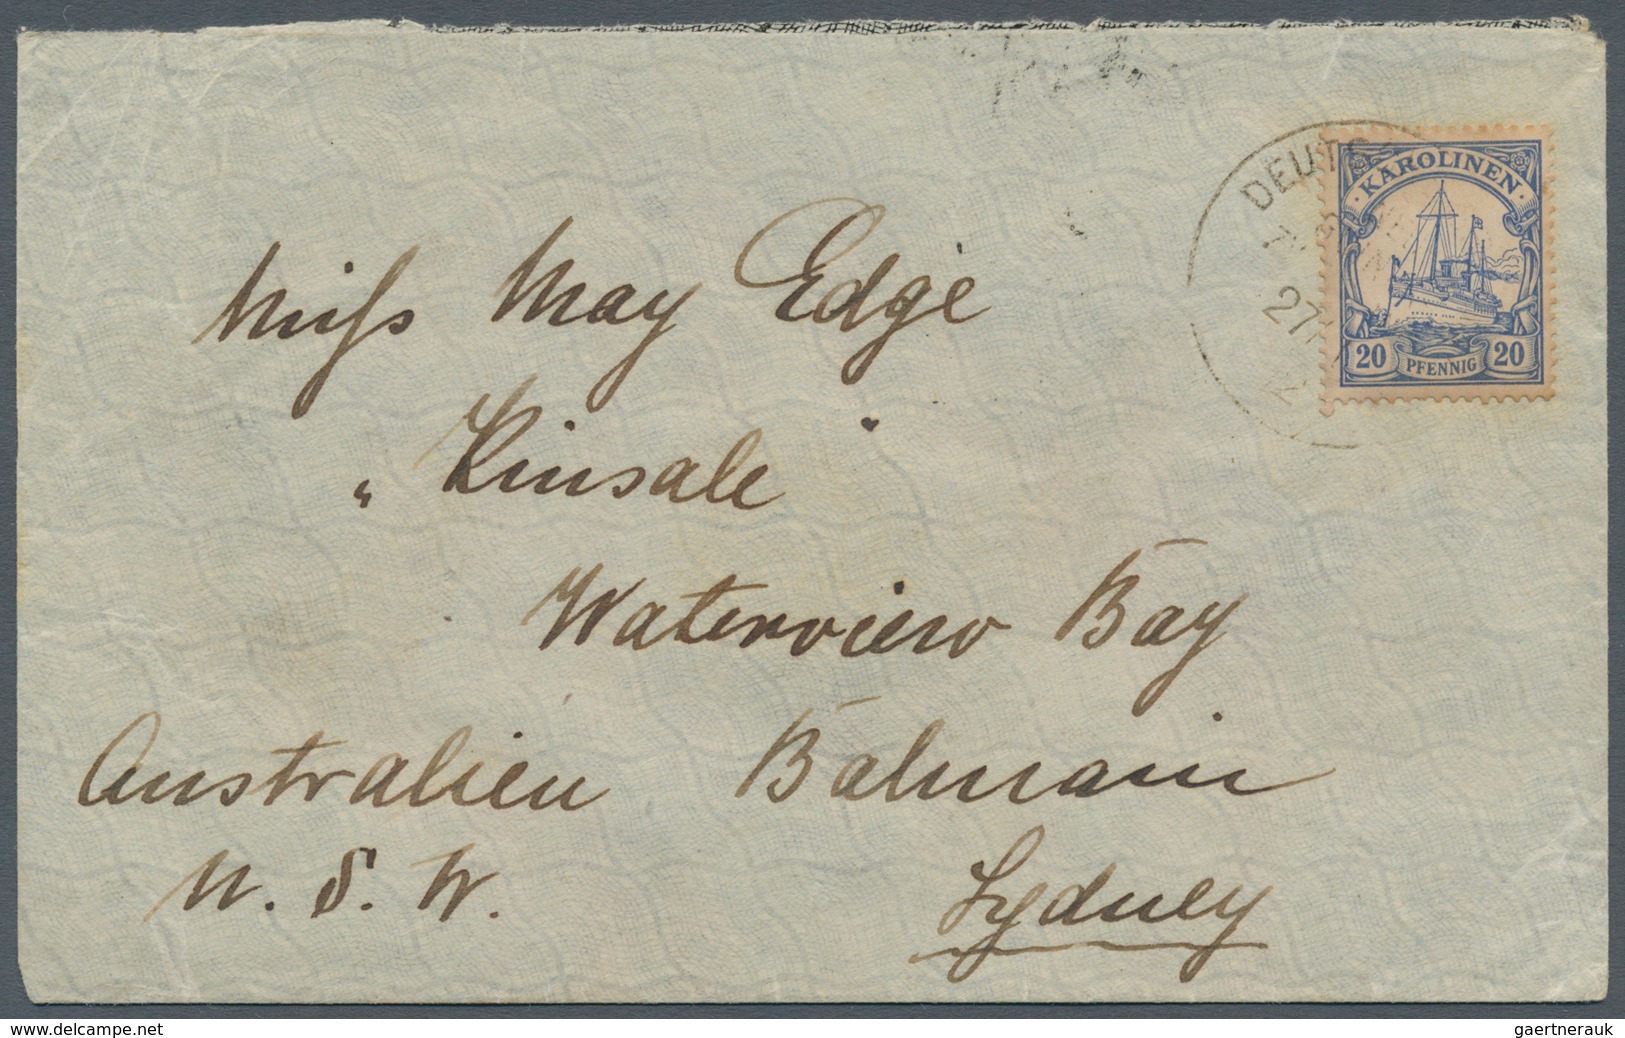 DEUTS
KAROLINEN
27
20 PFENNIG 20
Miss May Edge
"Kinsale"
Waterview Bay
Australien Balmain
N. S. W. Sydney
www.delcampe.net
gaertnerauk